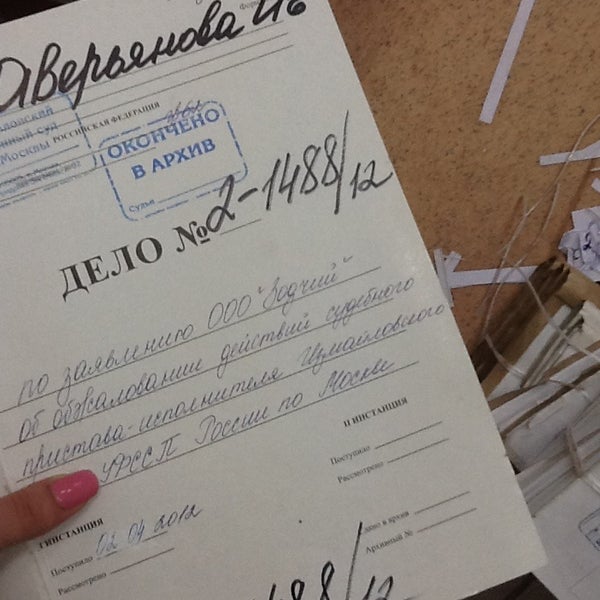 Аверьянова
РОССИЙСКАЯ ФЕДЕРАЦИЯ
суд
Москвы
ОКОНЧЕНО
В АРХИВ
Судья
ДЕЛО № 2-1488/12
по заявлению ООО "Зодчий"
об обжаловании действий судебного
пристава-исполнителя Измайловского
УФССП России по Москве
I ИНСТАНЦИЯ
Поступило 02 04 2012
Рассмотрено
II ИНСТАНЦИЯ
Поступило
Рассмотрено
дело в архив
Архивный №